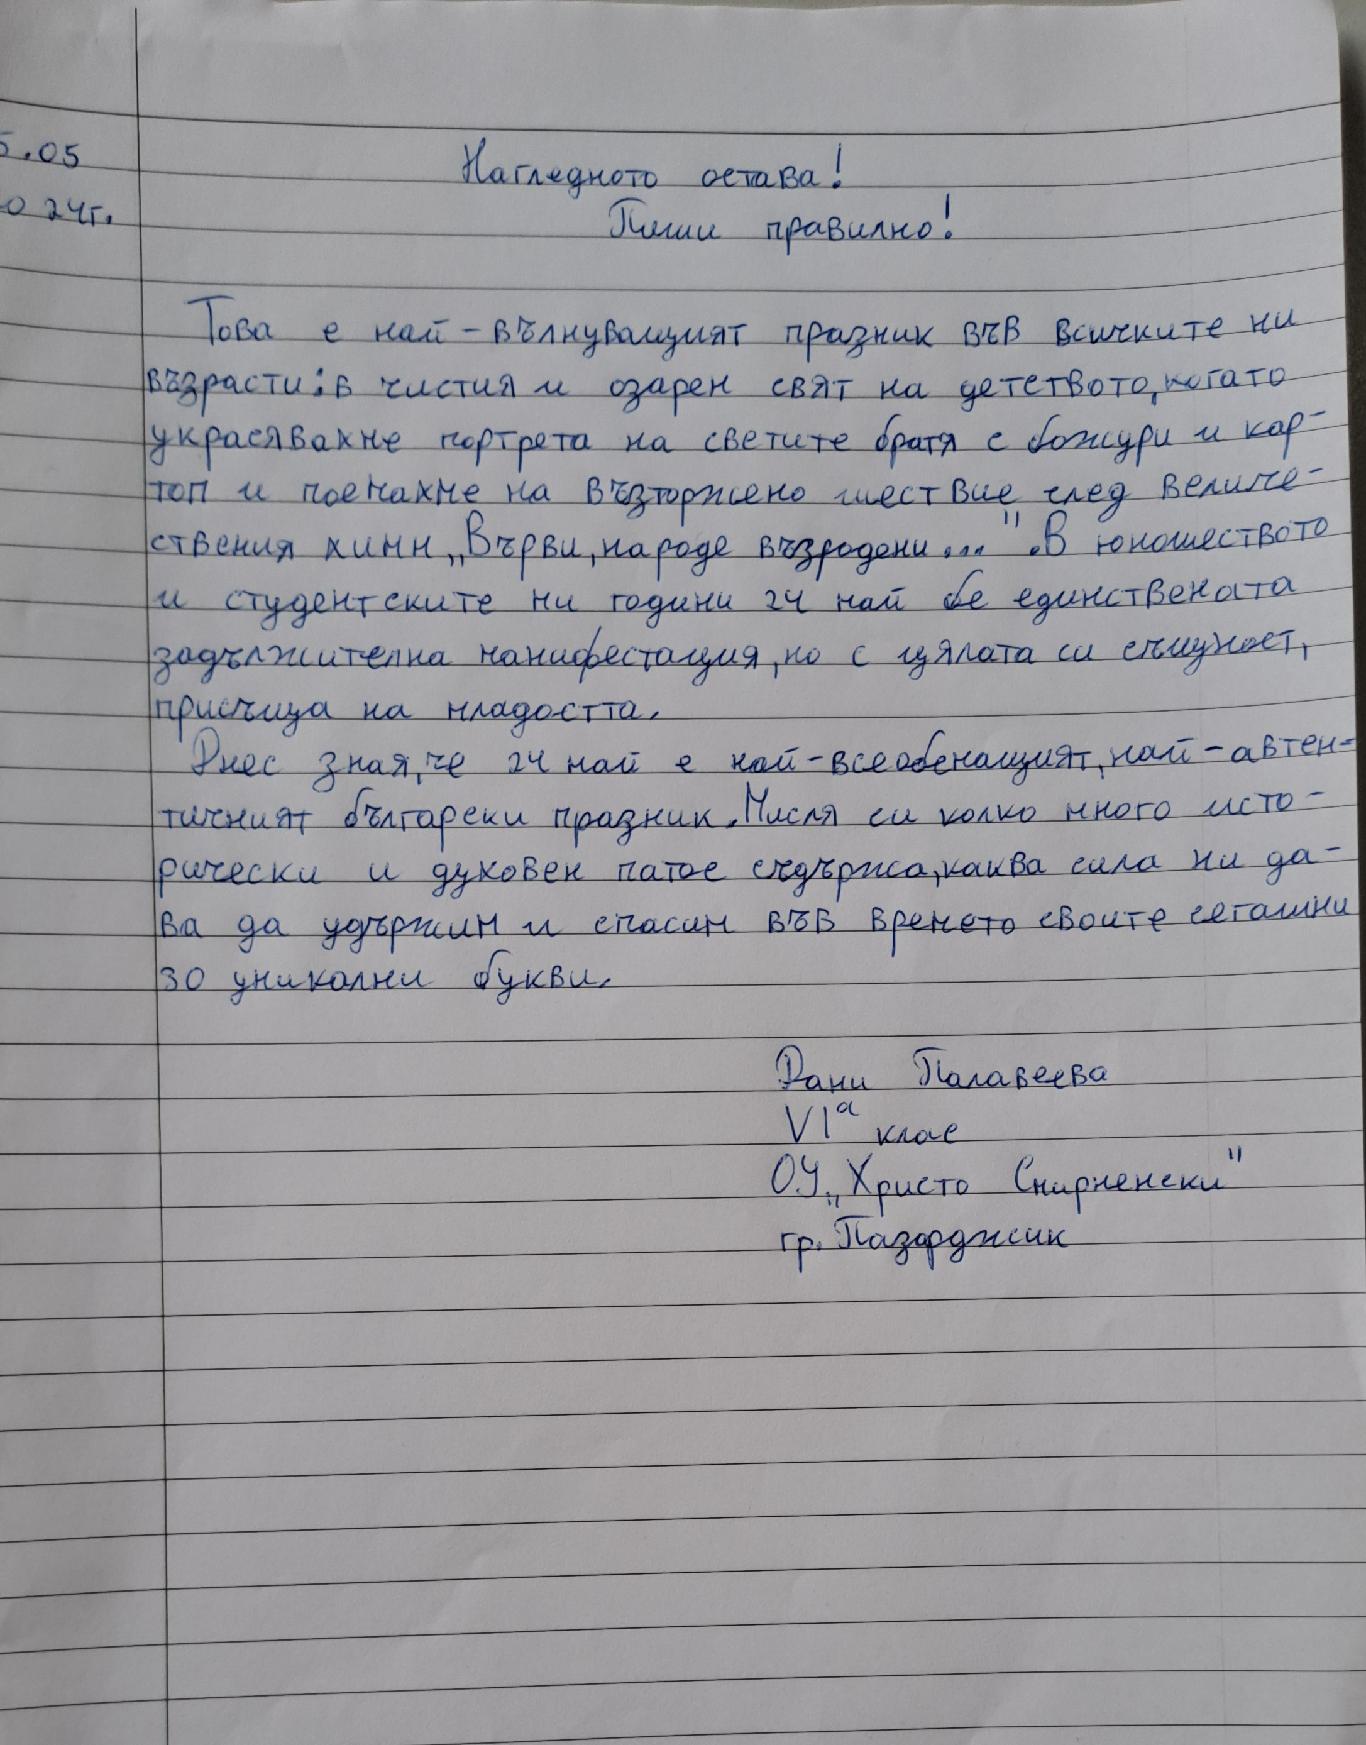 5.05
024г.
Нагледното остава!
Пиши правилно!
Това е най-вълнуващият празник във всичките ни
възрасти: в чистия и озарен свят на детството, когато
украсявахме портрета на светите братя с божури и кар-
топ и поемахме на възторжено шествие след величе-
ствения химн „Върви, народе възродени..." . В юношеството
и студентските ни години 24 май бе единствената
задължителна манифестация, но с цялата си същност,
присъща на младостта.
Днес зная, че 24 май е най-всеобемащият, най-автен-
тичният български празник. Мисля си колко много исто-
рически и духовен патос съдържа, каква сила ни да-
ва да удържим и спасим във времето своите сегашни
30 уникални букви.
Дани Палавеева
VIа клас
ОУ „Христо Смирненски"
гр. Пазарджик